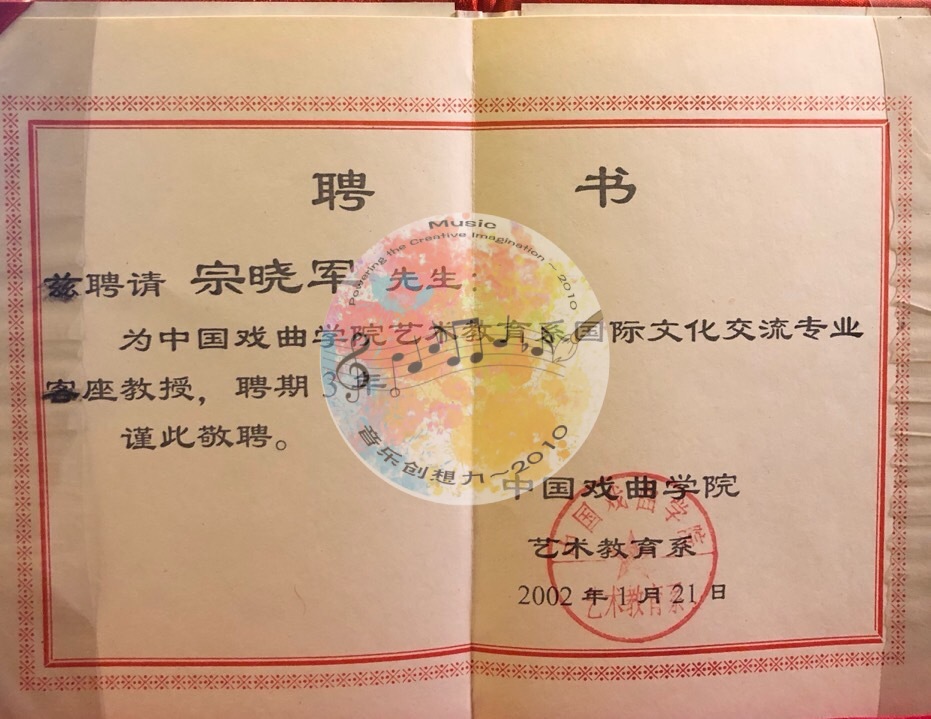 聘 书
兹聘请 宗晓军 先生：
为中国戏曲学院艺术教育系国际文化交流专业
客座教授，聘期 3 年。
谨此敬聘。
中国戏曲学院
艺术教育系
2002 年 1 月 21 日
中国戏曲学院
艺术教育系
Music
Powering the Creative Imagination ~ 2010
音乐创想力~2010